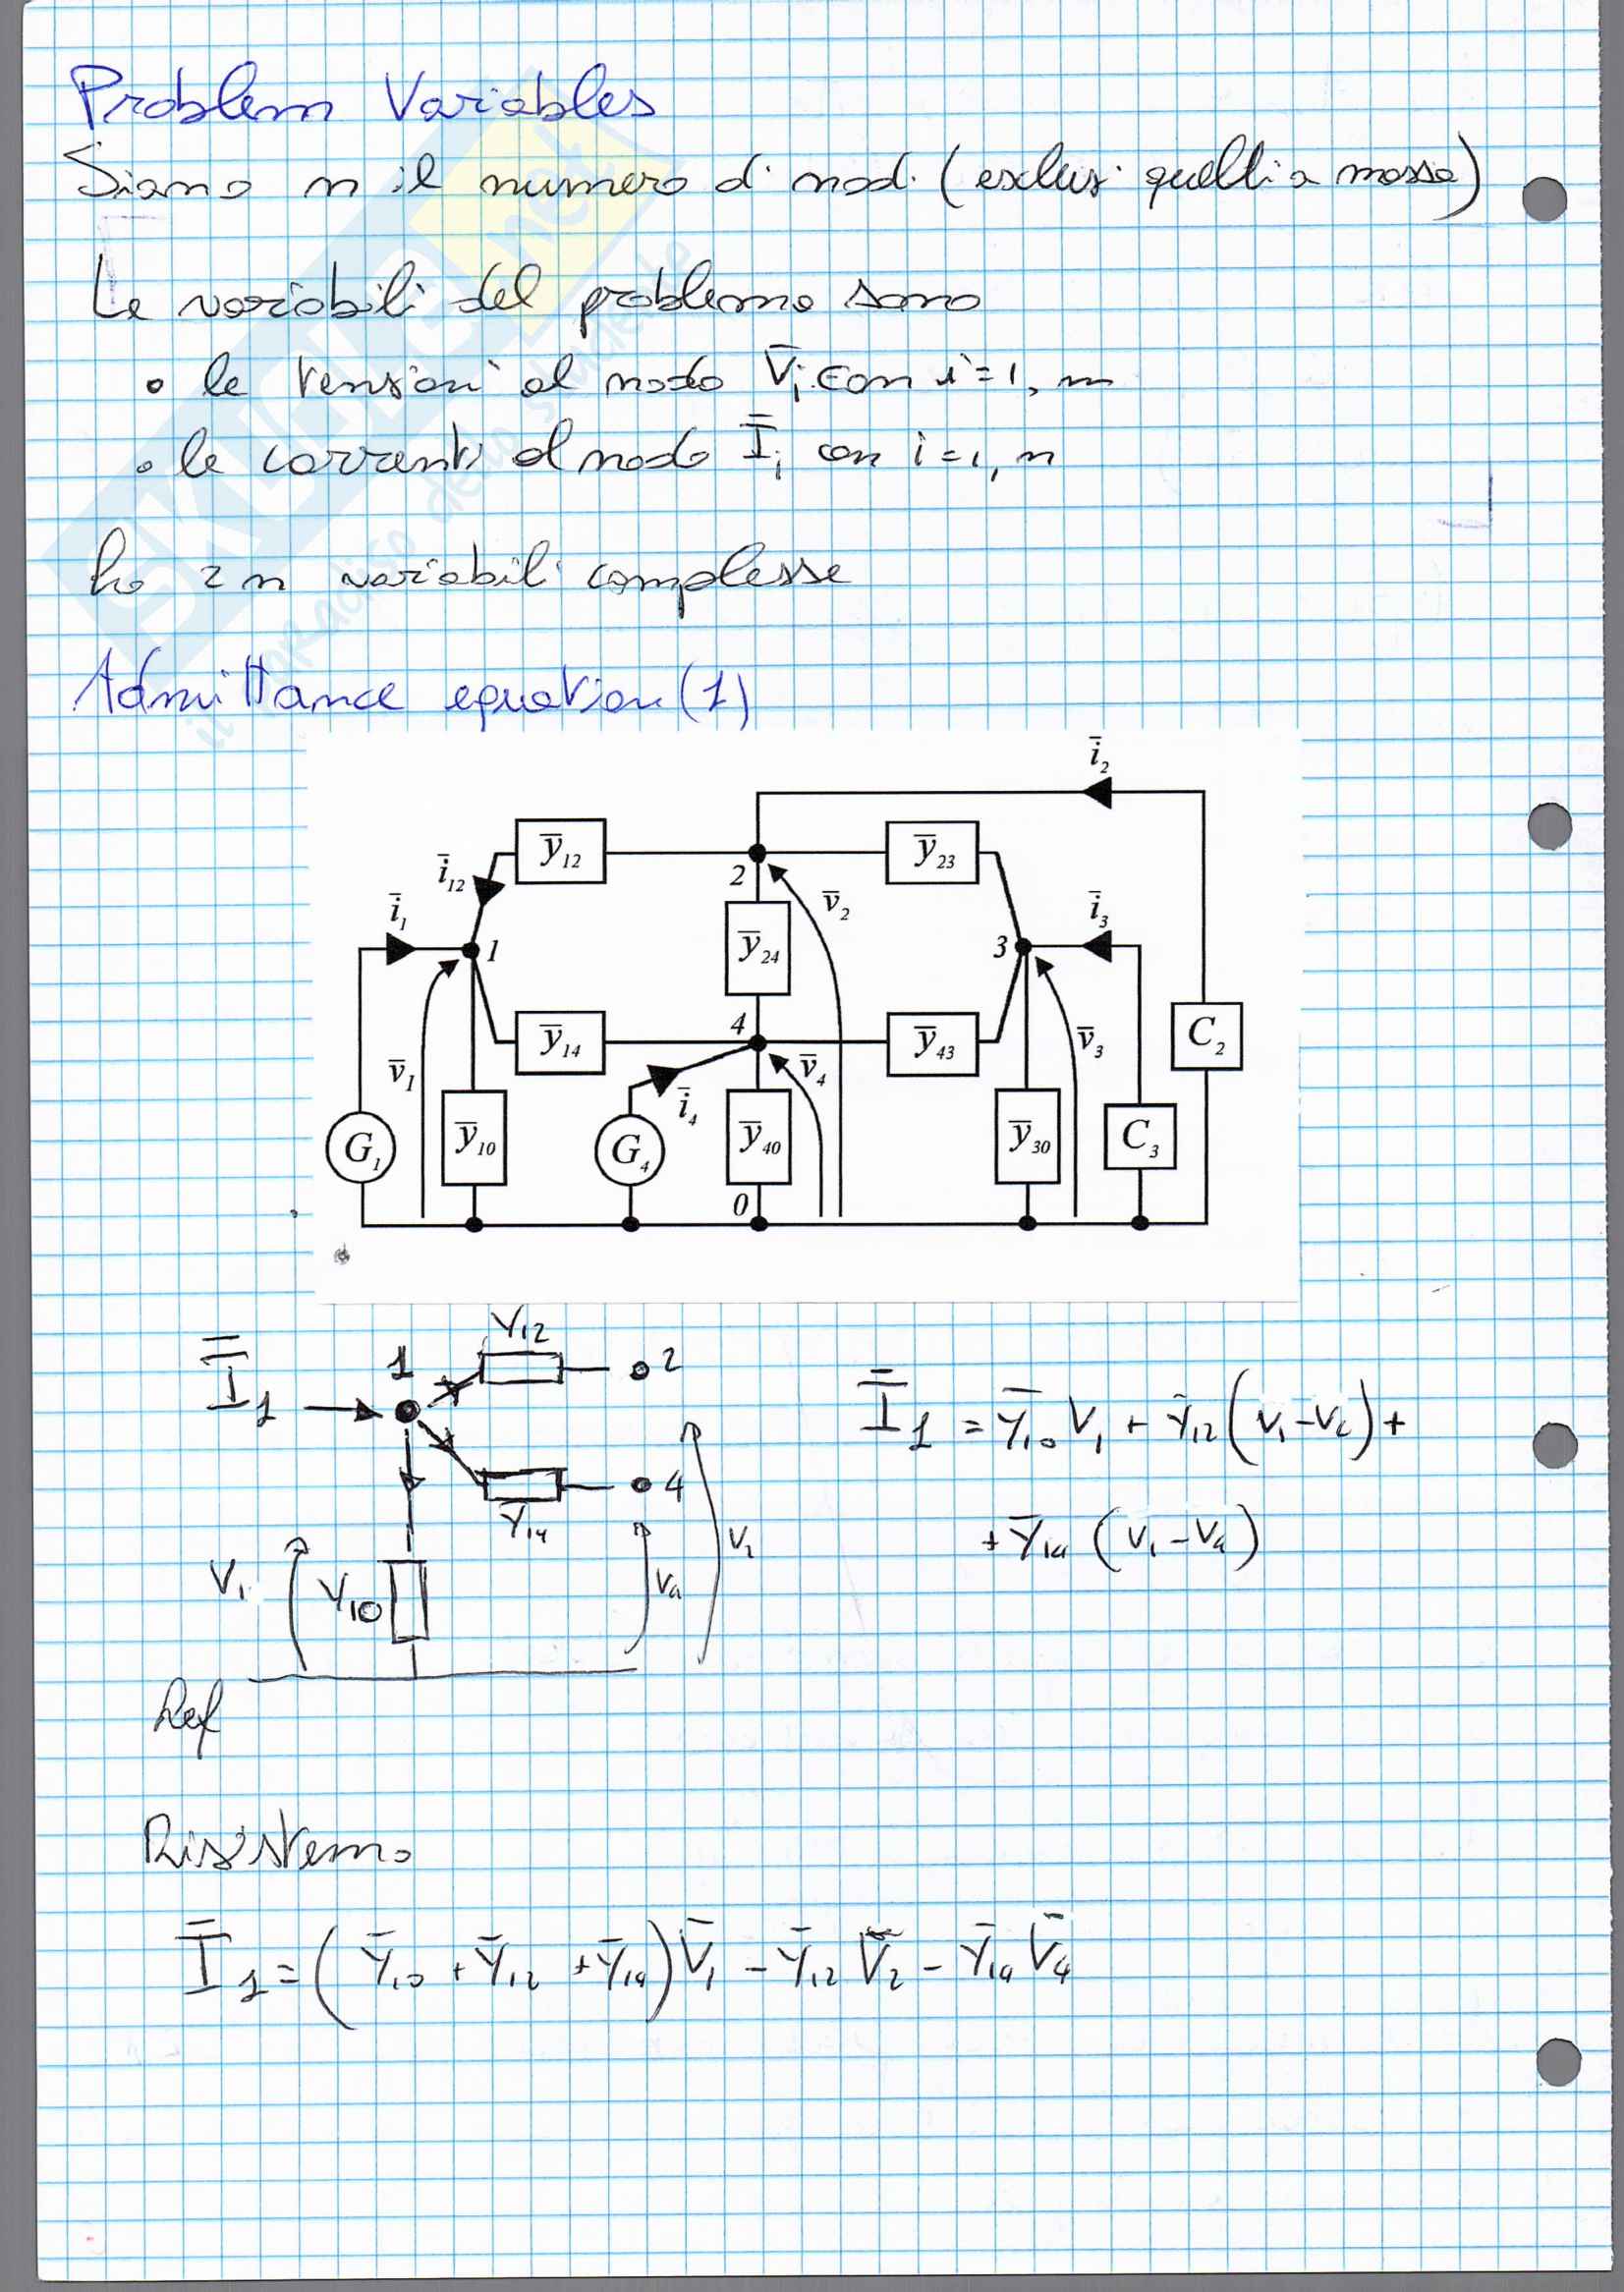 Problem Variables
Siano n il numero di nodi (esclusi quelli a massa)
Le variabili del problema sono
• le tensioni al nodo V̅i con i=1, n
• le correnti al nodo I̅i con i=1, n
ho 2n variabili complesse
Admittance equation (1)
i̅2
y̅12
y̅23
i̅12
2
v̅2
i̅1
i̅3
1
y̅24
3
4
y̅14
y̅43
v̅3
C2
v̅1
v̅4
i̅4
G1
y̅10
G4
y̅40
y̅30
C3
0
Y12
I̅1
1
2
I̅1 = Y̅10 V1 + Y̅12 (V1-V2) +
4
Y14
+ Y̅14 (V1-V4)
V2
V1
Y10
V4
Ref
Risistemo
I̅1 = (Y̅10 + Y̅12 + Y̅14) V̅1 - Y̅12 V̅2 - Y̅14 V̅4